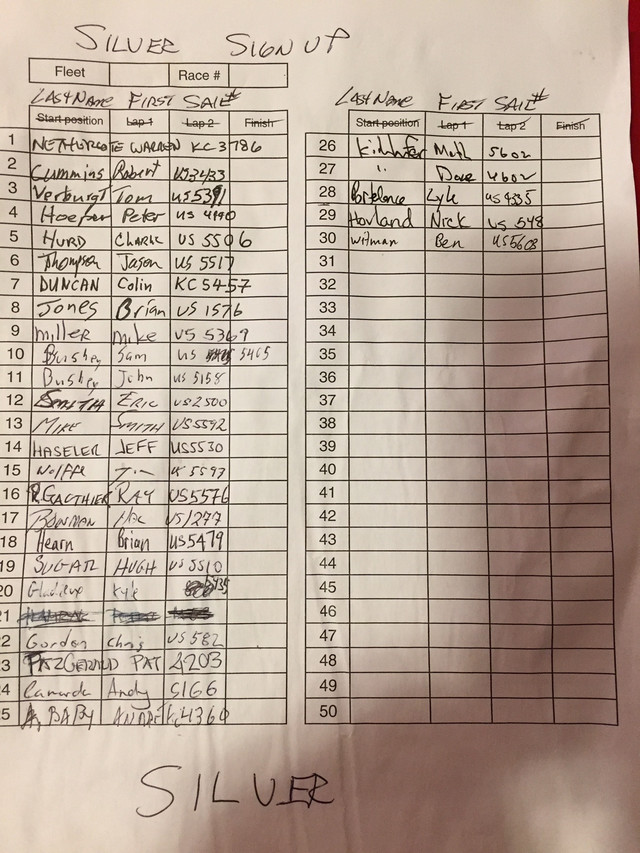 SILVER SIGN UP
Fleet Race #
LAST NAME FIRST SAIL#
Start position Lap 1 Lap 2 Finish
1 NETHERCOTE WARREN KC3786
2 Cummins Robert US3433
3 Verburgt Tom US5391
4 Hoeper Peter US 4490
5 HURD CHARLIE US 5506
6 Thompson Jason US 5517
7 DUNCAN Colin KC5457
8 Jones Brian US 1576
9 Miller Mike US 5369
10 Bushey Sam US 5465
11 Bushey John US 5158
12 SMITH ERIC US2500
13 MIKE SMITH US5592
14 HASELER JEFF US5530
15 Wolffe Tim 5597
16 R.GAUTHIER RAY US5576
17 BOWMAN US1277
18 Hearn Brian US5479
19 SUGAR HUGH US5510
20 Kyle
21
22 Gordon Chris US582
23 FITZGERALD PAT 2203
24 Camarda Andy 5166
25 BABY ANDRE KC4360
LAST NAME FIRST SAIL#
Start position Lap 1 Lap 2 Finish
26 5602
27 " Dave 4602
28 Lyle US4335
29 Hovland Nick US 548
30 Witman Ben US5608
31
32
33
34
35
36
37
38
39
40
41
42
43
44
45
46
47
48
49
50
SILVER